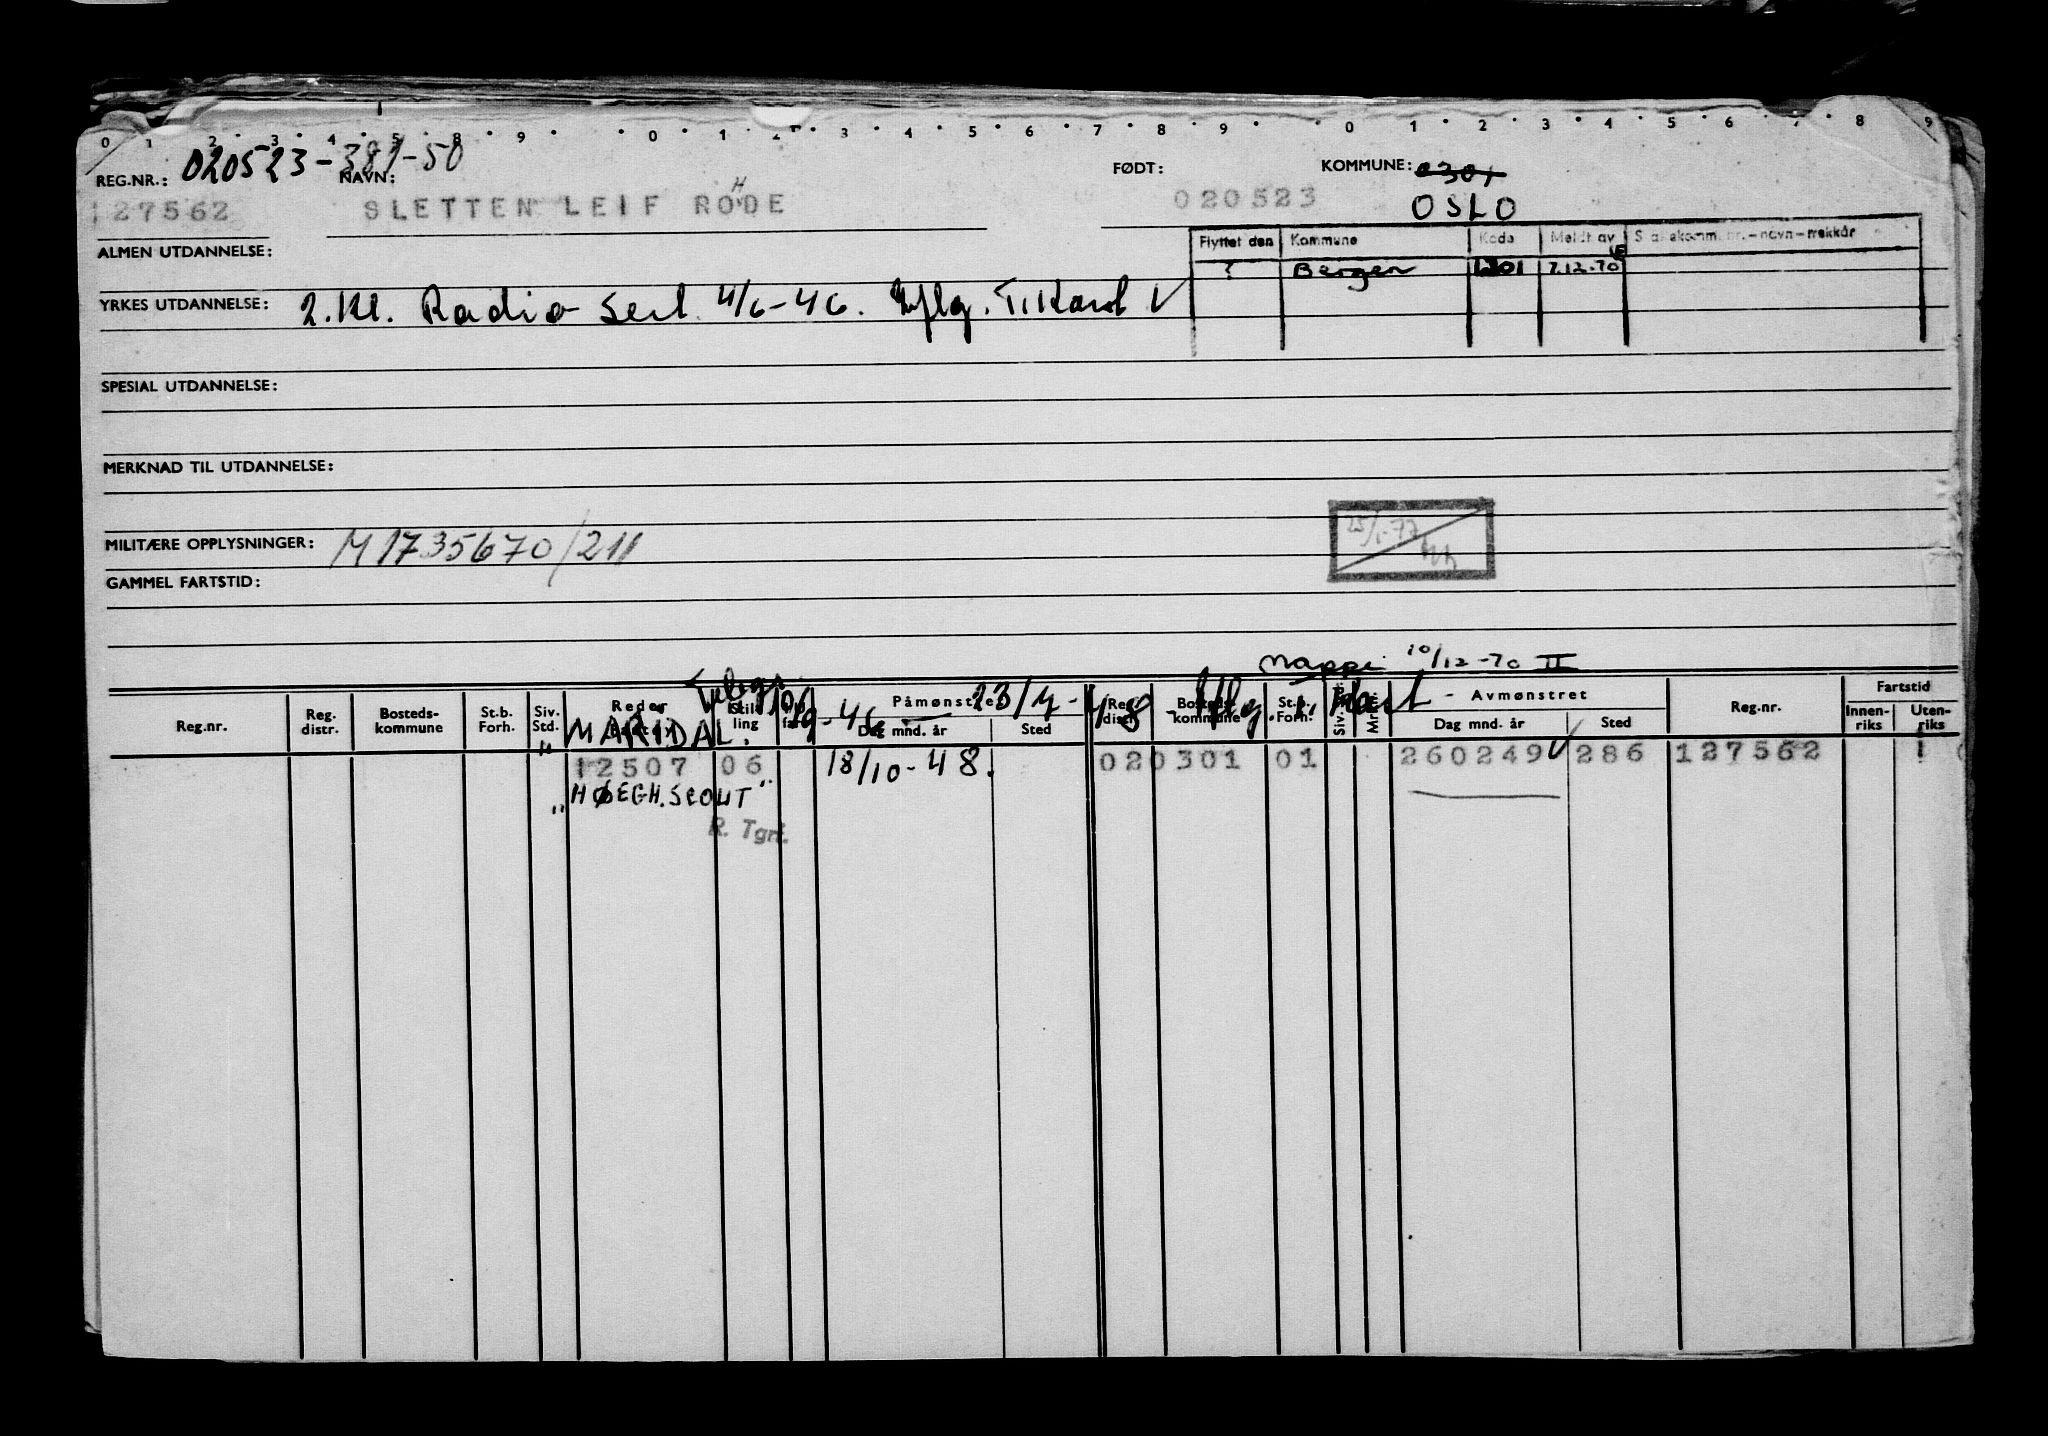 0 1 2 3 4 5 8 9 0 1 2 3 4 5 6 7 8 9 0 1 2 3 4 5 6 7 8 9
REG.NR.: 020523-381-50 NAVN: FØDT: KOMMUNE: 0301
127562 SLETTEN LEIF ROHDE 020523 OSLO
ALMEN UTDANNELSE:
Flyttet den Kommune Kode Meldt av
? Bergen 1301 7.12.70
YRKES UTDANNELSE: 2.kl. Radio sert. 4/6-46.
SPESIAL UTDANNELSE:
MERKNAD TIL UTDANNELSE:
25/1-77
MILITÆRE OPPLYSNINGER: M1735670/211
GAMMEL FARTSTID:
Mappe 10/12-70 II
Reg.nr. Reg. distr. Bosteds-kommune St.b. Forh. Siv. Std. Rederi Stilling Påmønstret Dag mnd. år Sted Reg. distr. Bosteds-kommune St.b. Forh. Siv. Avmønstret Dag mnd. år Sted Reg.nr. Fartstid Innen-riks Uten-riks
"MARIDAL" 23/7-48
12507 06 18/10-48. 020301 01 260249 286 127562
"HØEGH.SCOUT"
R. Tgrf.